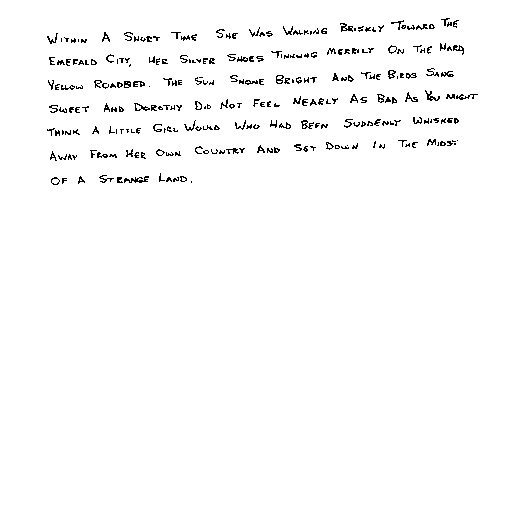 Within A Short Time She Was Walking Briskly Toward The
Emerald City, Her Silver Shoes Tinkling Merrily On The Hard,
Yellow Roadbed. The Sun Shone Bright And The Birds Sang
Sweet And Dorothy Did Not Feel Nearly As Bad As You Might
Think A Little Girl Would Who Had Been Suddenly Whisked
Away From Her Own Country And Set Down In The Midst
Of A Strange Land.